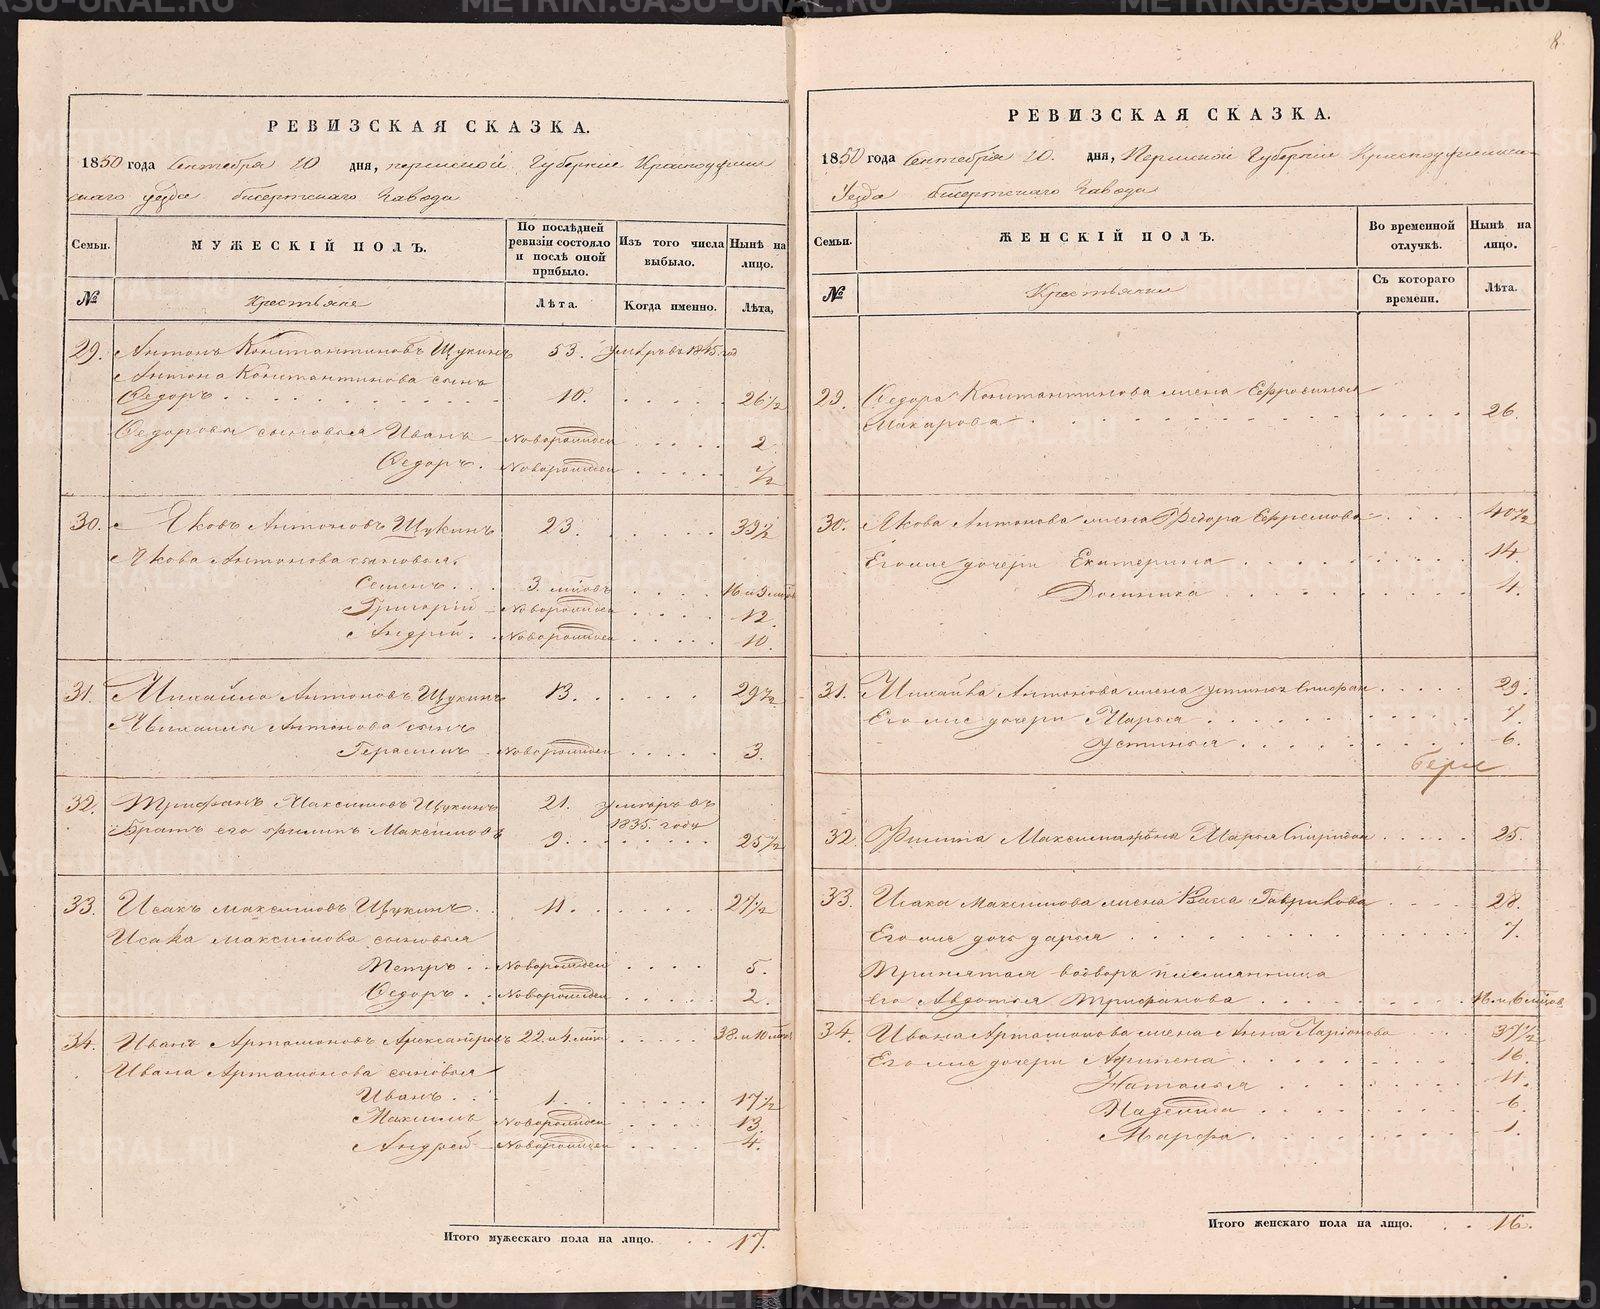 8.
РЕВИЗСКАЯ СКАЗКА.
1850 года Сентября 20 дня, пермской Губернии Красноуфим
скаго уезда бисертскаго Завода
Семьи.
МУЖЕСКІЙ ПОЛЪ.
По послѣдней ревизіи состояло и послѣ оной прибыло.
Изъ того числа выбыло.
Нынѣ на лицо.
№
Крестьяне
Лѣта.
Когда именно.
Лѣта,
29. Антонъ Константиновъ Щукинъ 53. умеръ въ 1845 год
Антона Константинова сынъ
Ѳедоръ 10. 26½
Ѳедоровы сыновья Иванъ Новорожден 2
Ѳедоръ. Новорожден ½
30. Яковъ Антоновъ Щукинъ 23. 39½
Якова Антонова сыновья
Семенъ 3. мѣсцовъ 16 и 9 мѣсц
Григорій Новорожден 12.
Андрей. Новорожден 10.
31. Михайло Антоновъ Щукинъ 13. 29½
Михаила Антонова сынъ
Герасимъ Новорожден 3.
32. Трифанъ Максимовъ Щукинъ 21. умеръ въ 1835. году
Братъ его Филипъ Максимовъ 9. 25½
33. Исакъ Максимовъ Щукинъ 11. 27½
Исака Максимова сыновья
Петръ Новорожден 5.
Ѳедоръ Новорожден 2.
34. Иванъ Артамоновъ Александровъ 22. и 4. мѣс 38. и 10 мѣс
Ивана Артамонова сыновья
Иванъ 1. 17½
Максимъ Новорожден 13.
Андрей Новорожден 4.
Итого мужескаго пола на лицо. 17.
РЕВИЗСКАЯ СКАЗКА.
1850 года Сентября 20. дня, Пермской Губерніи Красноуфимска-
Уезда бисертскаго Завода
Семьи.
ЖЕНСКІЙ ПОЛЪ.
Во временной отлучкѣ.
Нынѣ на лицо.
№
Крестьянки
Съ котораго времени.
Лѣта.
29. Ѳедора Константинова жена Ефросинья
Макарова 26.
30. Якова Антонова жена Ѳедора Ефремова 40½
Его же дочери Екатерина 14.
Домника 4.
31. Михайла Антонова жена устинья Стефан 29.
Его же дочери Марья 7.
Устинья 6.
32 Филипа Максимова жена Марья Спиридон 25.
33. Исака Максимова жена Васа Гаврилова 28.
Его же дочь дарья 7.
Принятая во дворъ племянница
его Авдотья Трифанова 16 и 6 мѣсцов
34. Ивана Артамонова жена Анна Ларіонова 37½
Его же дочери Афимена 16.
Наталья 11.
Надежда 6
Марфа. 1.
Итого женскаго пола на лицо. 16.